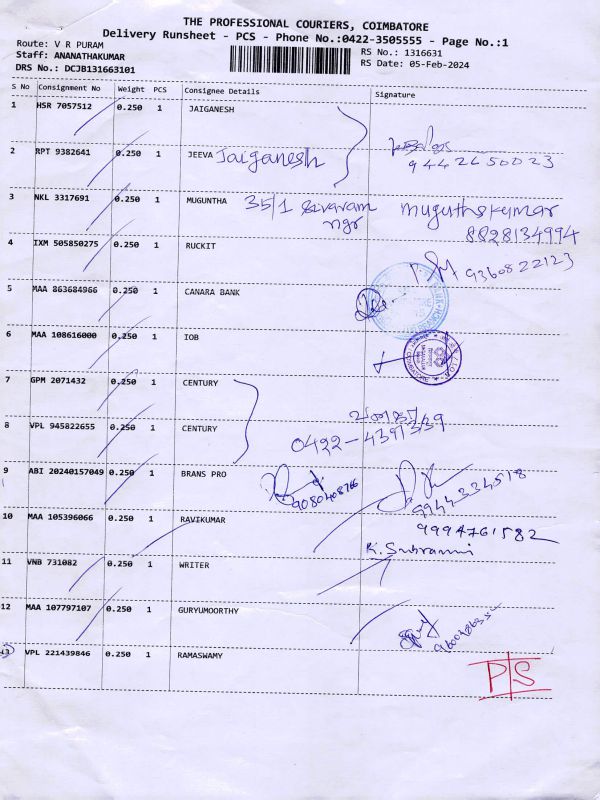 THE PROFESSIONAL COURIERS, COIMBATORE
Delivery Runsheet - PCS - Phone No.:0422-3505555 - Page No.:1
Route: V R PURAM
Staff: ANANATHAKUMAR
DRS No.: DCJB131663101
RS No.: 1316631
RS Date: 05-Feb-2024
S No Consignment No Weight PCS Consignee Details Signature
1 HSR 7057512 0.250 1 JAIGANESH
2 RPT 9382641 0.250 1 JEEVA Jaiganesh 9442650023
3 NKL 3317691 0.250 1 MUGUNTHA 35/1 Sivaram ngr muguthskumar
8828134994
4 IXM 505850275 0.250 1 RUCKIT 9360822123
5 MAA 863684966 0.250 1 CANARA BANK
6 MAA 108616000 0.250 1 IOB
7 GPM 2071432 0.250 1 CENTURY
8 VPL 945822655 0.250 1 CENTURY 0422-4397339
9 ABI 20240157049 0.250 1 BRANS PRO 9080408766 9944334518
10 MAA 105396066 0.250 1 RAVIKUMAR 9994761582
K. Subramni
11 VNB 731082 0.250 1 WRITER
12 MAA 107797107 0.250 1 GURYUMOORTHY
13 VPL 221439846 0.250 1 RAMASWAMY P/S